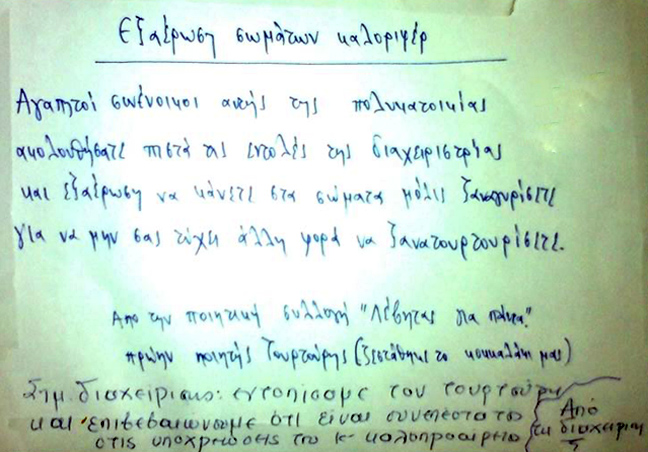 Εξαέρωση σωμάτων καλοριφέρ
Αγαπητοί συνένοικοι αυτής της πολυκατοικίας
ακολουθήσατε πιστά τις εντολές της διαχειρίστριας
και εξαέρωση να κάνετε στα σώματα μόλις ξαναγυρίσετε
για να μην σας τύχει άλλη φορά να ξανατουρτουρίσετε.
Από την ποιητική συλλογή "Λέβητας για πάντα"
πρώην ποιητής Τουρτούρης (ζεστάθηκε το κοκκαλάκι μας)
Σημ. διαχείρισης: εντοπίσαμε τον τουρτούρη
και επιβεβαιώνουμε ότι είναι συνεπέστατος
στις υποχρεώσεις του κ' καλοπροαίρετος
Από
τη διαχείριση